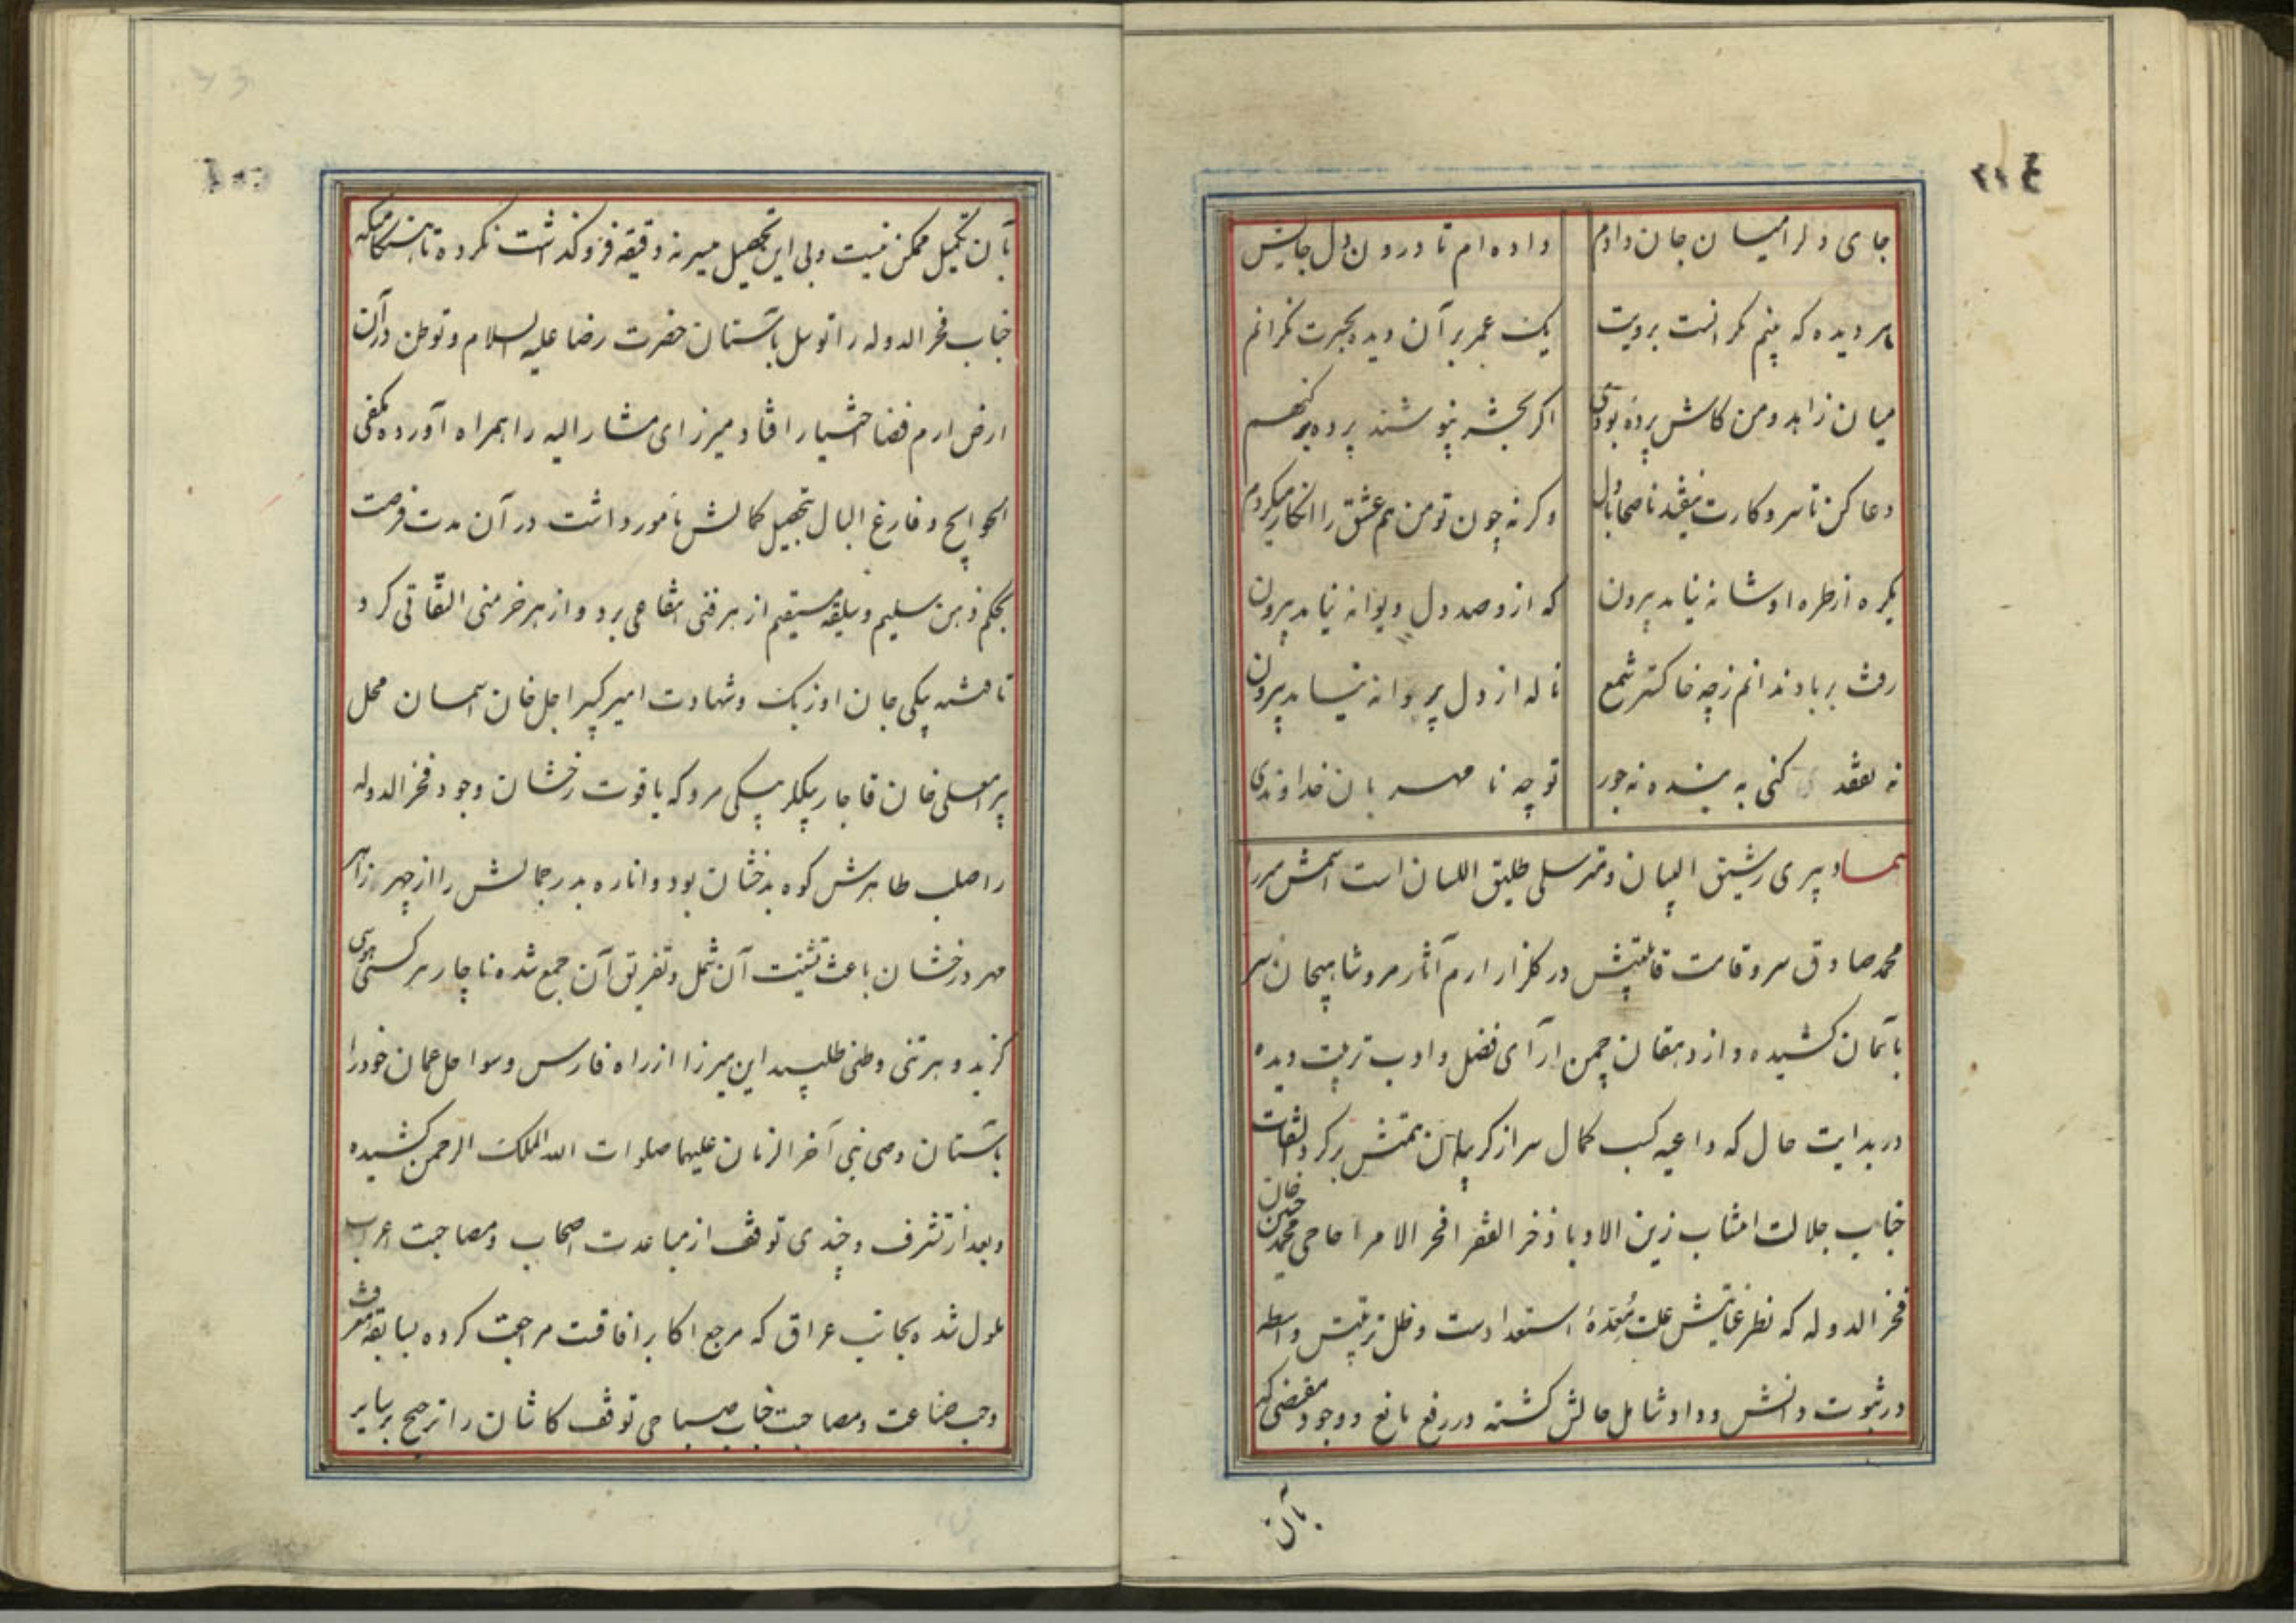 جای دلرا میان جان دادم داده ام تا درون دل جایش
بهر دیده که بینم نگرانست برویت یک عمر بر آن دیده بحیرت نگرانم
میان زاهد و من کاش پرده بودی اگر بحشر نپوشند پرده بر گنهم
دعا کن تا سر و کارت نیفتد ناصحا با دل وگرنه چون تو من هم عشق را انکار میکردم
یکره از طره او شانه نیاید بیرون که ازو صد دل دیوانه نیاید بیرون
رفت بر باد ندانم ز چه خاکستر شمع ناله از دل پروانه نیاید بیرون
نه تفقد کنی به بنده نه جور تو چه نا مهربان خداوندی
هما دبیری رشیق البیان و مترسلی طلیق اللسان است اسمش میرزا
محمد صادق سرو قامت قابلیتش در گلزار ارم آثار مرو شاهیجان سر
بآسمان کشیده و از دهقان چمن آرای فضل و ادب تربیت دیده
در بدایت حال که داعیه کسب کمال سر از گریبان همتش برکرد التفات
جناب جلالت انتساب زین الادبا ذخر الفقرا فخر الامرا حاجی محمد حسین خان
فخر الدوله که نظر عنایتش علت مُعِدّهٔ استعدادست و ظل تربیتش واسطه
در ثبوت دانش و داد شامل حالش گشته در رفع مانع و وجود مقتضی که
بآن
بآن تکمیل ممکن نیست و بی این تحصیل میسر نه دقیقه فروگذاشت نکرده تا هنگامیکه
جناب فخر الدوله را توسل بآستان حضرت رضا علیه السلام و توطن در آن
ارض ارم فضا اختیار افتاد میرزای مشار الیه را همراه آورده مکفی
الحوایج و فارغ البال بتحصیل کمالش مامور داشت در آن مدت فرصت
بحکم ذهن سلیم و سلیقه مستقیم از هر فنی انتفاعی برد و از هر خرمنی التقاطی کرد
تا فتنه بیکی جان اوزبک و شهادت امیر کبیر اجل خان آسمان محل
بیرامعلی خان قاجار بیگلربیگی مرو که یاقوت رخشان وجود فخر الدوله
را صلب طاهرش کوه بدخشان بود و اناره بدر جمالش را از چهر زاهر
مهر درخشان باعث تشتیت آن شمل و تفریق آن جمع شده ناچار هر کسی هوسی
گزید و هر تنی وطنی طلبید این میرزا از راه فارس و سواحل عمان خود را
بآستان وصی نبی آخر الزمان علیهما صلوات الله الملک الرحمن کشیده
و بعد از تشرف و چندی توقف از مباعدت اصحاب و مصاحبت اعراب
ملول شده بجانب عراق که مرجع اکابر آفاقست مراجعت کرده بسابقه معرفت
و جب صناعت و مصاحبت جناب صباحی توقف کاشان را ترجیح بر سایر